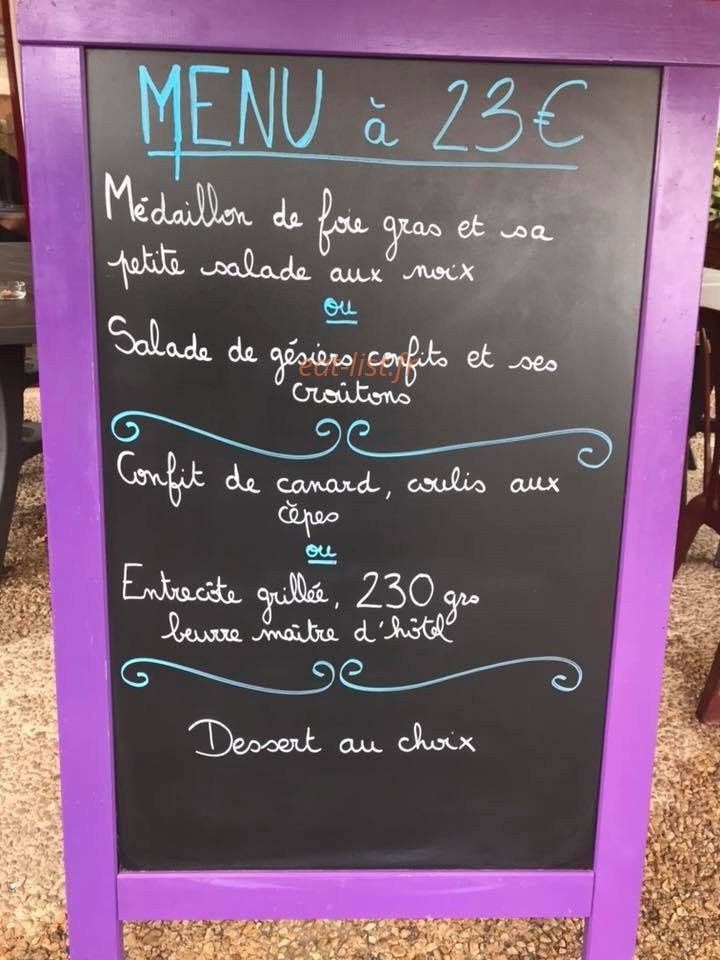 MENU à 23€
Médaillon de foie gras et sa
petite salade aux noix
ou
Salade de gésiers confits et ses
eat-list.fr
croûtons
Confit de canard, coulis aux
cèpes
ou
Entrecôte grillée, 230 grs
beurre maître d'hôtel
Dessert au choix